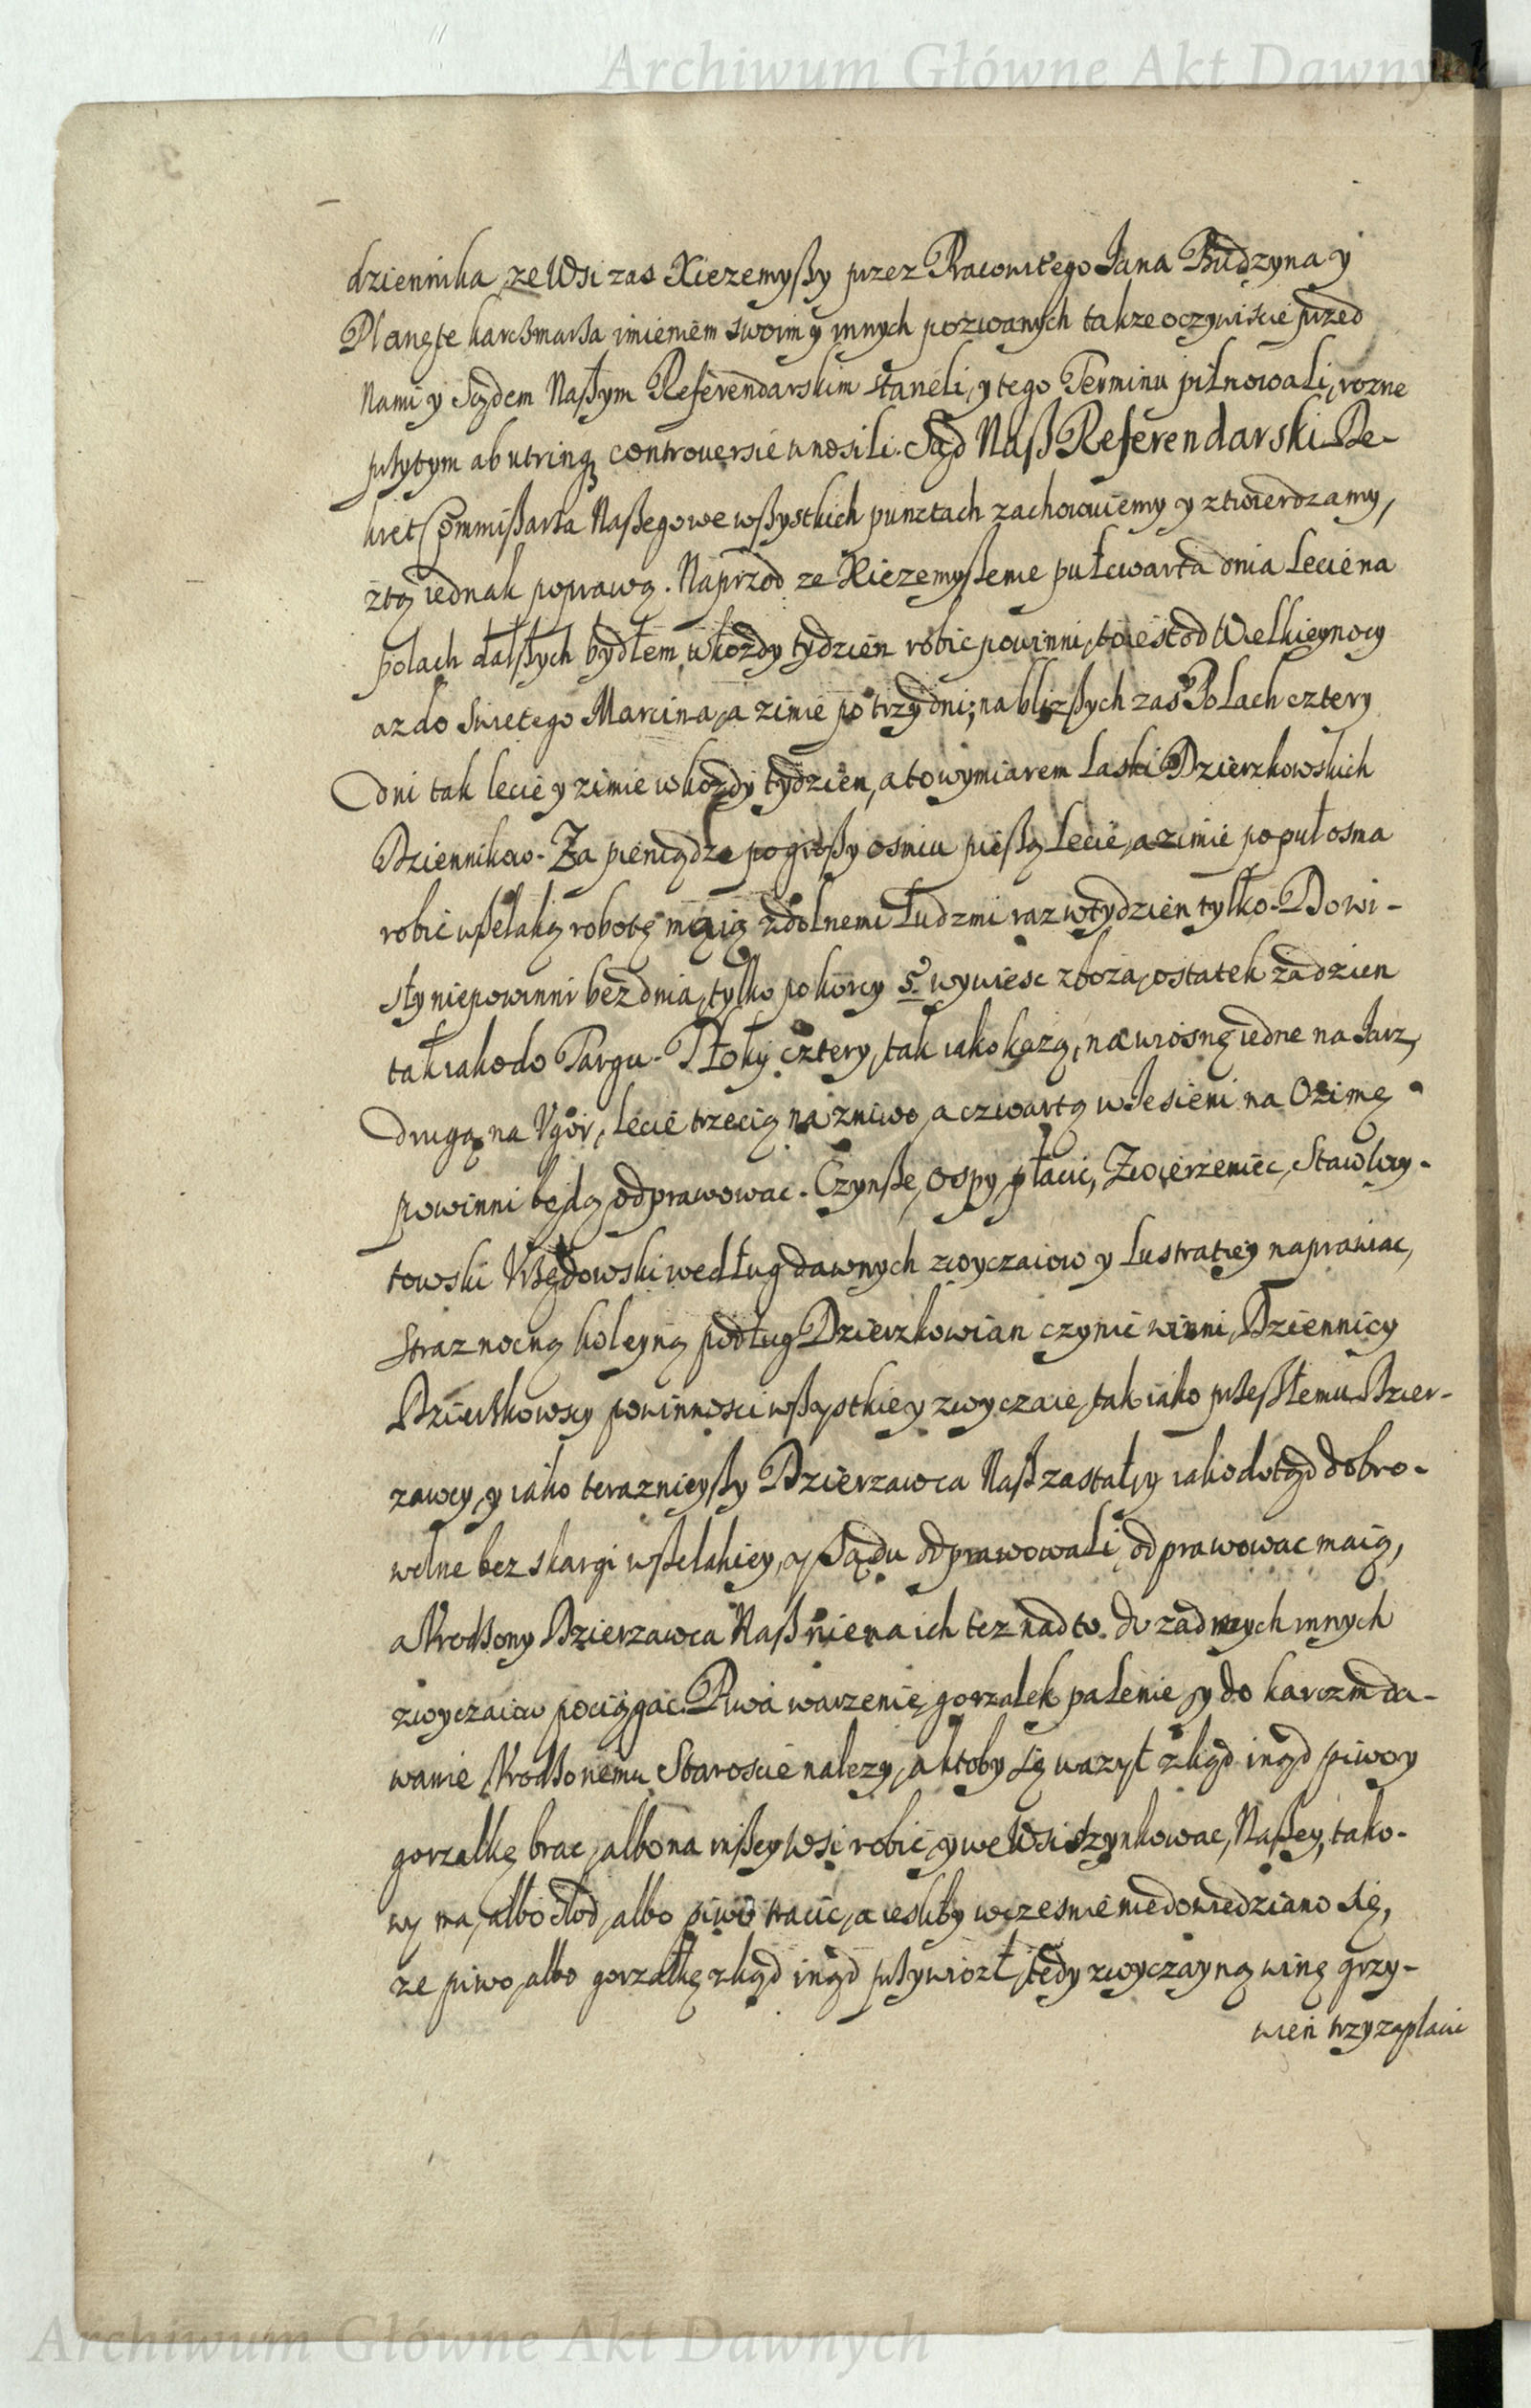 Archiwum Główne Akt Dawnych
dziennika, ze Wsi zas Xiezemyßy przez Pracowitego Jana Budzyna y
Planętę karczmarza imieniem swoim y innych pozwanych takze oczywiscie przed
Nami y Sądem Naßym Referendarskim staneli, y tego Terminu pilnowali, rozne
przytym ab utrinq controuersie wnosili. Sąd Naß Referendarski De-
kret Commißarza Naßego we wßystkich punctach zachowuiemy y ztwierdzamy,
ztą iednak poprawą. Naprzod ze Xiezemyßenie pułcwarta dnia lecie na
polach dalßych bydłem w kozdy tydzien robic powinni, to iest od Wielkieynocy
az do Swietego Marcina, a zimie po trzy dni; na blizßych zas Polach cztery
dni tak lecie y zimie w kozdy tydzien, a to wymiarem laski Dzierzkowskich
Dziennikow. Za pieniądze po großy osmiu pießą lecie, a zimie po puł osma
robic wßelaką robotę maią zdolnemi ludzmi raz w tydzien tylko. Do Wi-
sły niepowinni bez dnia, tylko po korcy 5 wywiesc zboza, ostatek za dzien
tak iako do Targu. Tłoky cztery, tak iako kazą, na wiosnę iedne na Jarz,
drugą na Vgor, lecie trzecią na zniwo, a czwartą w Jesieni na Ozimę
powinni będą odprawowac. Czynße, ospy płacic, Zwierzeniec, Staw Woy-
towski Vrzędowski według dawnych zwyczaiow y Lustratiey naprawiac,
straz nocną koleyną podług Dzierzkowian czynic winni, Dziennicy
Dzierzkowscy powinnosci wßystkie y zwyczaie, tak iako przeßłemu Dzier-
zawcy, y iako teraznieyßy Dzierzawca Naß zastał, y iako dotąd dobro-
wolne bez skargi wßelakiey, y Sądu odprawowali, odprawowac maią,
a Vrodzony Dzierzawca Naß nie ma ich tez nad to do zadnych innych
zwyczaiow pociągac. Piwa warzenie, gorzalek palenie, y do karczm da-
wanie Vrodzonemu Staroscie nalezy, a ktoby się wazył zkąd inąd piwo y
gorzalkę brac, albo na inßey Wsi robic, y we Wsi szynkowac, Naßey, tako-
wy ma, albo słod, albo piwo tracic, a iesliby wczesnie niedowiedziano się,
ze piwo, albo gorzałkę zkąd inąd przywiozł, tedy zwyczayną winę grzy-
wien trzy zapłaci
Archiwum Główne Akt Dawnych